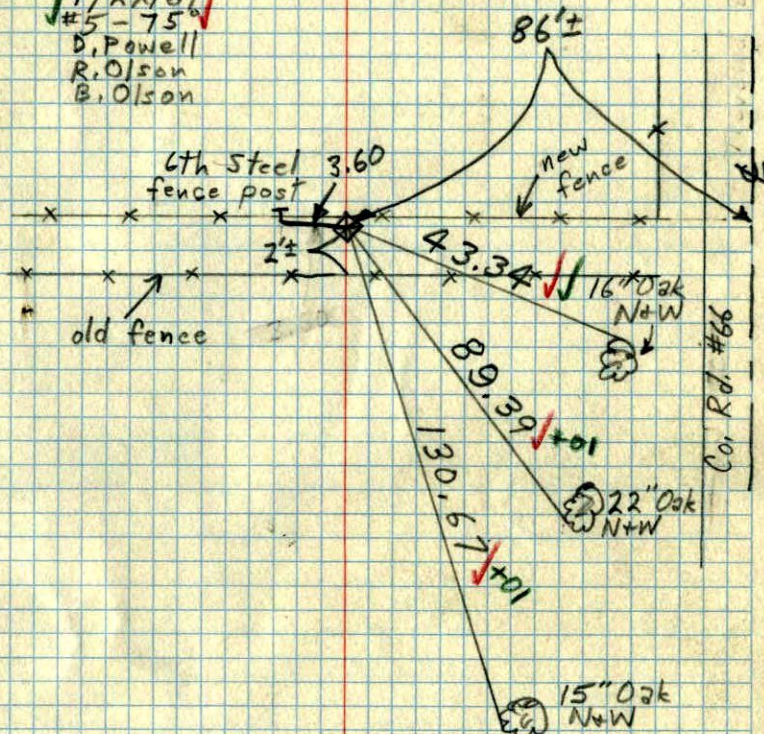 #5 - 75°
D. Powell
R. Olson
B. Olson
86'±
6th Steel
fence post
3.60
new
fence
2'±
old fence
43.34
16" Oak
N+W
89.39
+01
22" Oak
N+W
130.67
+01
15" Oak
N+W
Co. Rd. #66